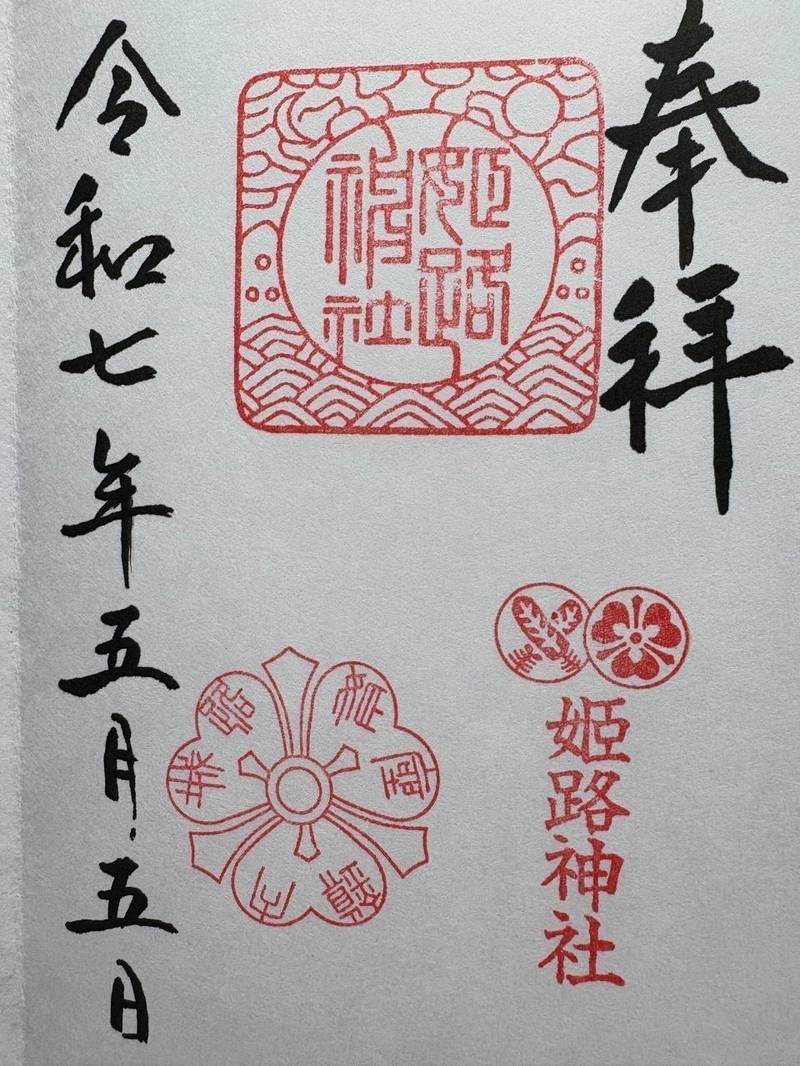 奉拝
姫路神社
姫路神社
令和七年五月五日